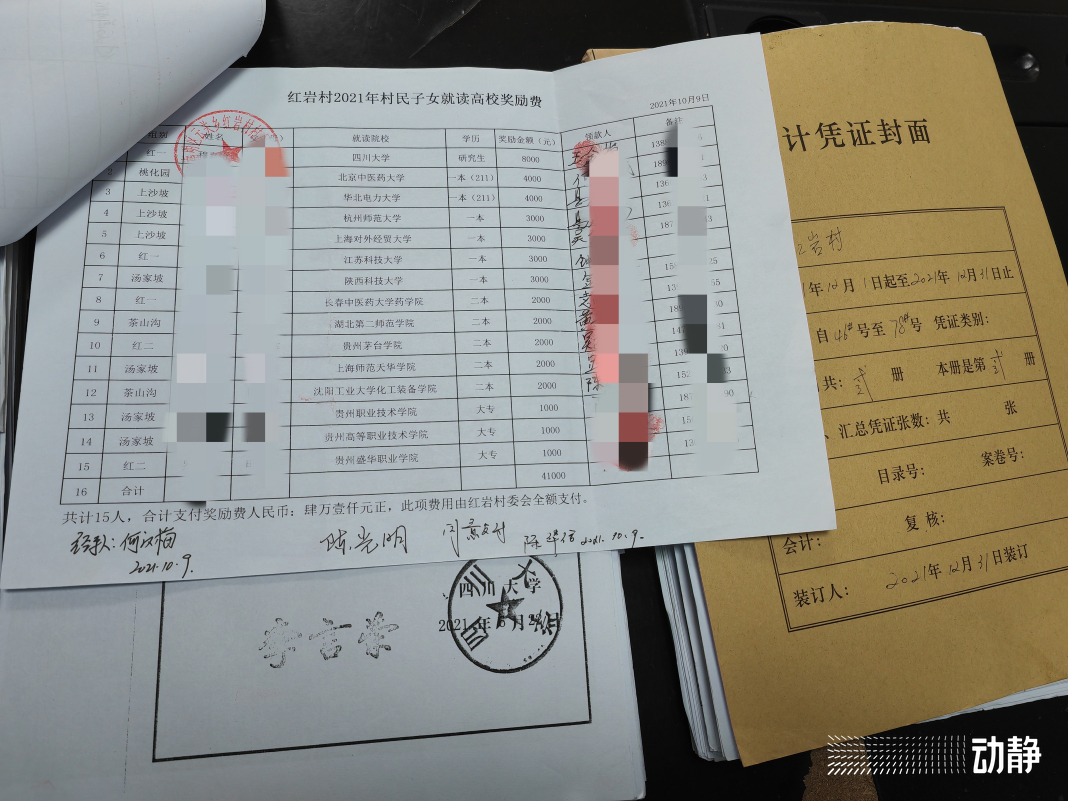 红岩村2021年村民子女就读高校奖励费
2021年10月9日
组别 姓名 就读院校 学历 奖励金额（元） 领款人 备注
红一 四川大学 研究生 8000
2 桃化园 北京中医药大学 一本（211） 4000
3 上沙坡 华北电力大学 一本（211） 4000
4 上沙坡 杭州师范大学 一本 3000
5 上沙坡 上海对外经贸大学 一本 3000
6 红一 江苏科技大学 一本 3000
7 汤家坡 陕西科技大学 一本 3000
8 红一 长春中医药大学药学院 二本 2000
9 茶山沟 湖北第二师范学院 二本 2000
10 红二 贵州茅台学院 二本 2000
11 汤家坡 上海师范大学天华学院 二本 2000
12 茶山沟 沈阳工业大学化工装备学院 二本 2000
13 汤家坡 贵州职业技术学院 大专 1000
14 汤家坡 贵州高等职业技术学院 大专 1000
15 红二 贵州盛华职业学院 大专 1000
16 合计 41000
共计15人，合计支付奖励费人民币：肆万壹仟元正，此项费用由红岩村委会全额支付。
经手人：何汉梅
2021.10.9.
陈光明
同意支付
2021.10.9.
四川大学
2021年6月28日
李言荣
计凭证封面
岩村
年12月1日起至2021年12月31日止
自46#号至78#号 凭证类别：
共： 册 本册是第 册
、汇总凭证张数：共 张
目录号： 案卷号：
会计： 复核：
装订人： 2021年12月31日装订
动静